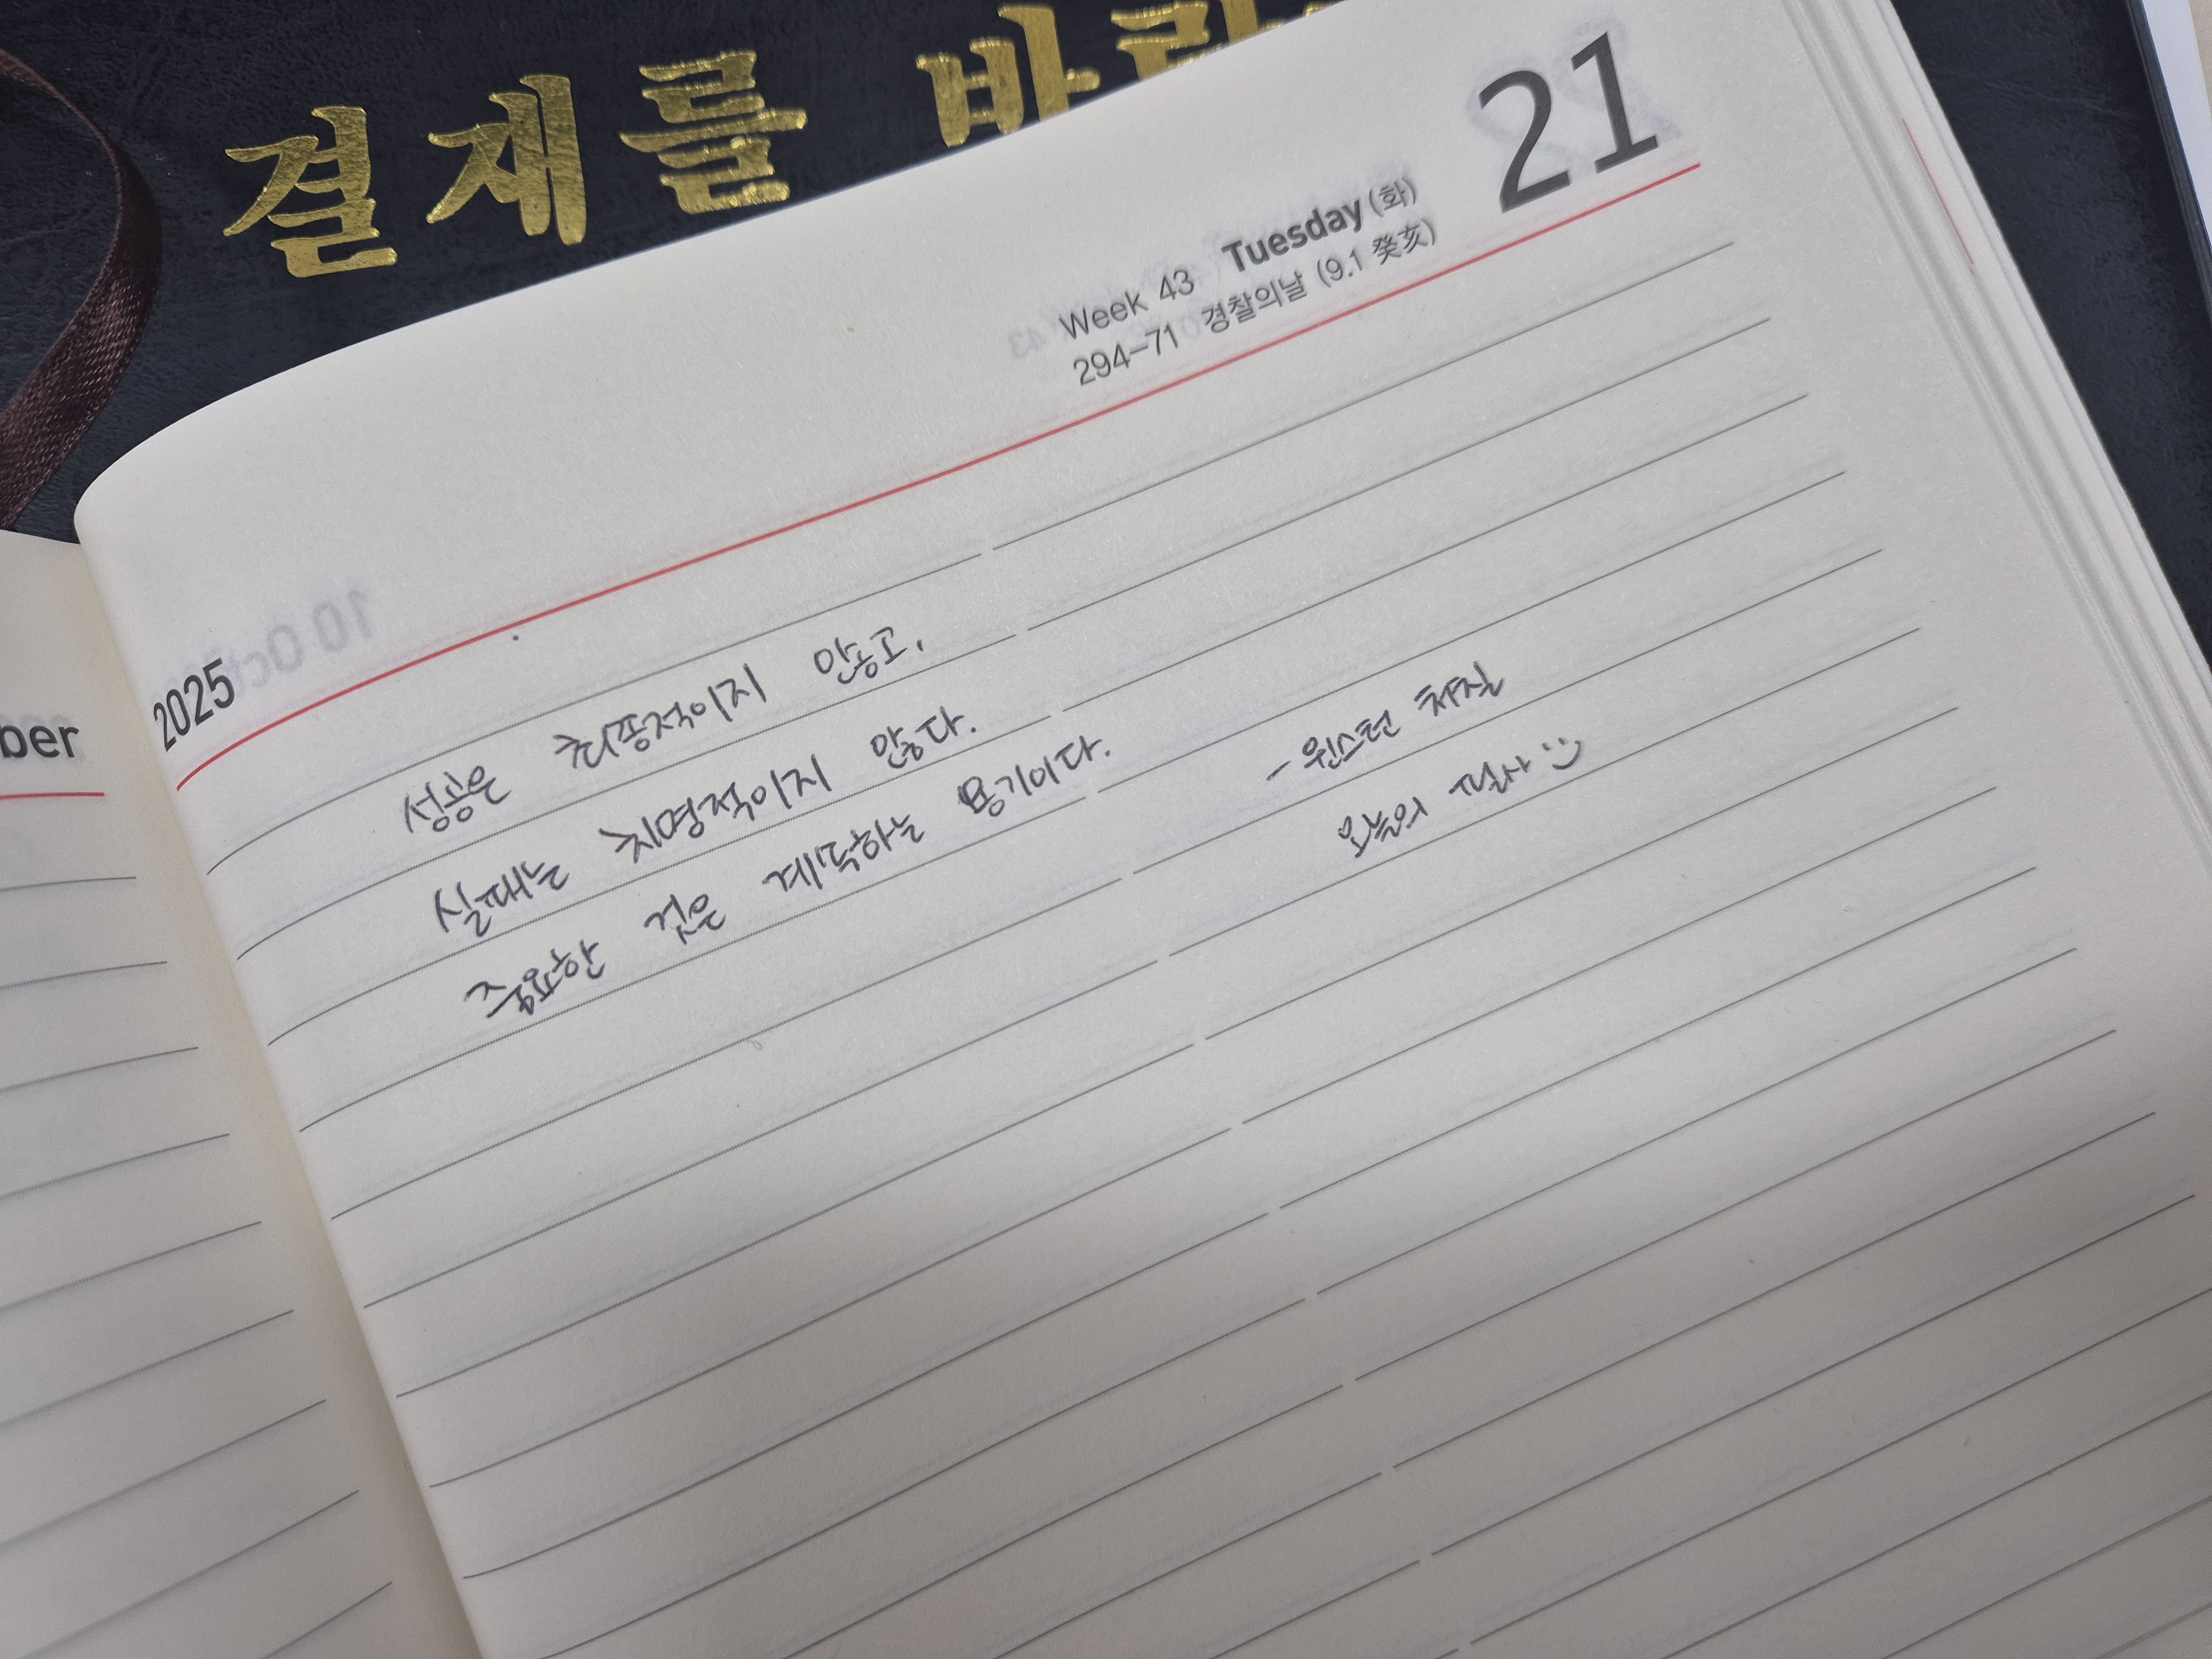 결재를 바랍
21
Week 43 Tuesday (화)
294-71 경찰의날 (9.1 癸亥)
2025
ber
성공은 최종적이지 않고,
실패는 치명적이지 않다.
중요한 것은 계속하는 용기이다.
- 윈스턴 처칠
오늘의 필사